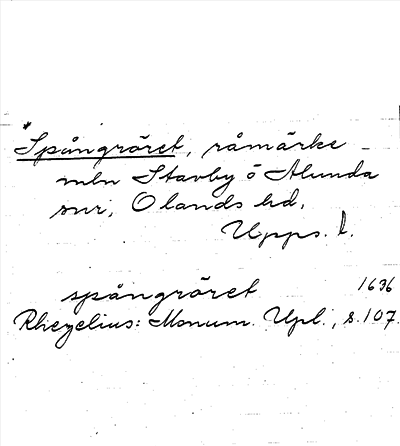 *Spångröret, råmärke -
mln Stavby o Alunda
snr, Olands hd,
Upps. l.
spångröret 1636
Rhezelius: Monum. Upl., s. 107.